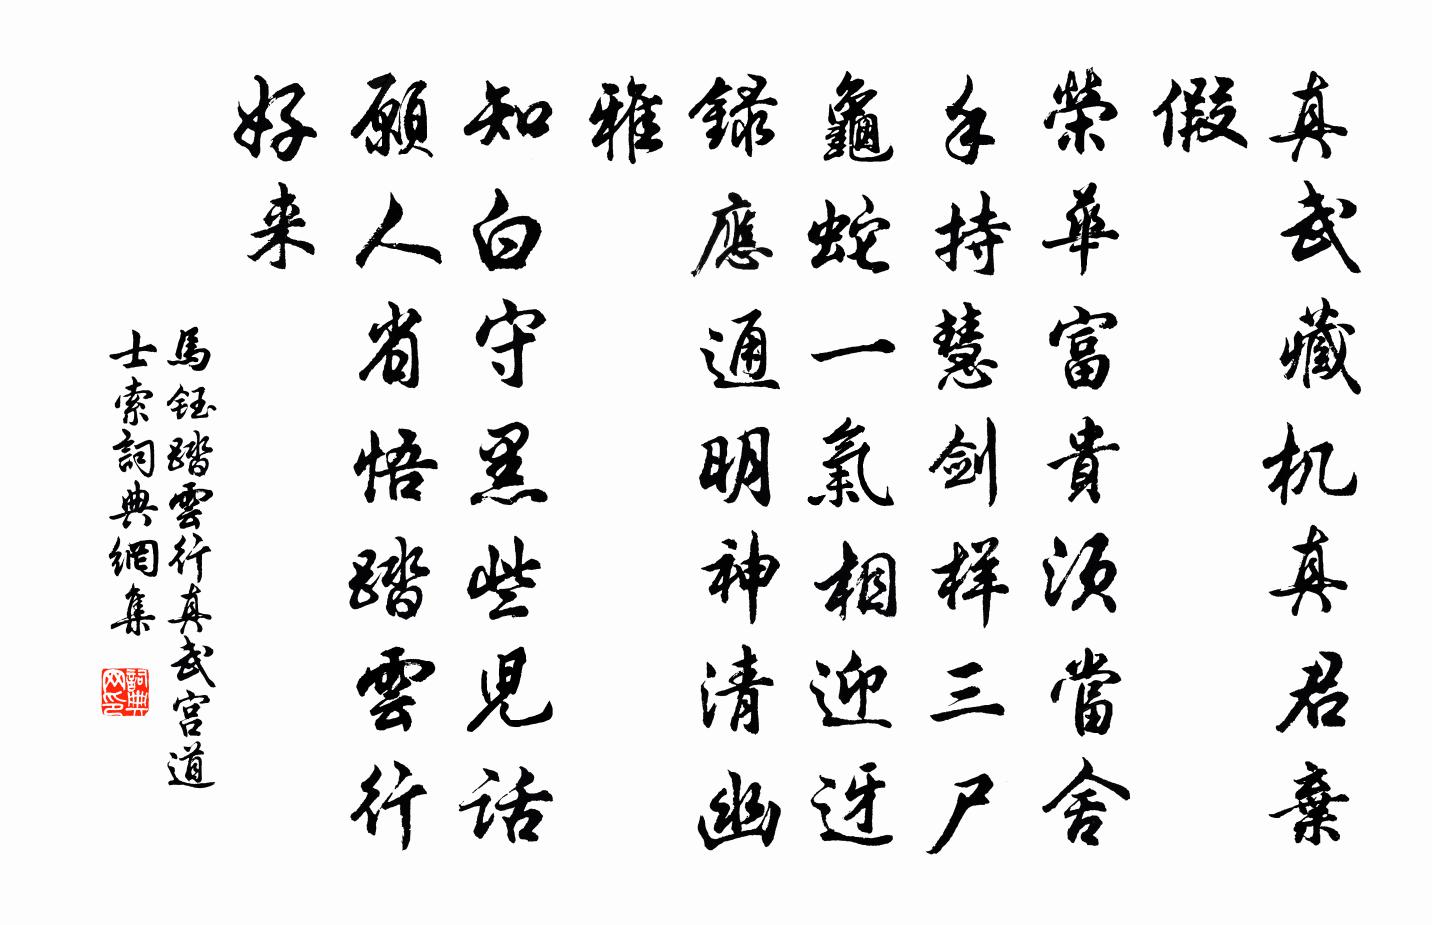 真武藏机真君棄
假
榮華富貴須當舍
手持慧剑样三尸
龜蛇一氣相迎迓
録應通明神清幽
雅
知白守黑些児話
願人省悟踏雲行
好来
馬鈺踏雲行真武宫道
士索詞典網集
詞典
网印